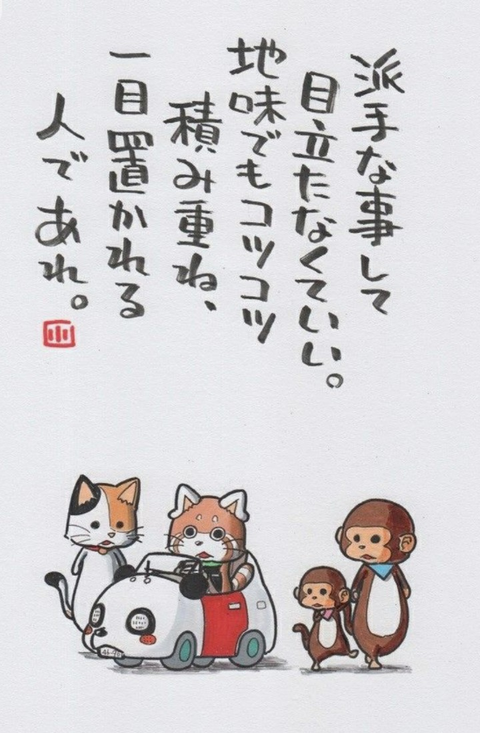 派手な事して
目立たなくていい。
地味でもコツコツ
積み重ね、
一目置かれる
人であれ。